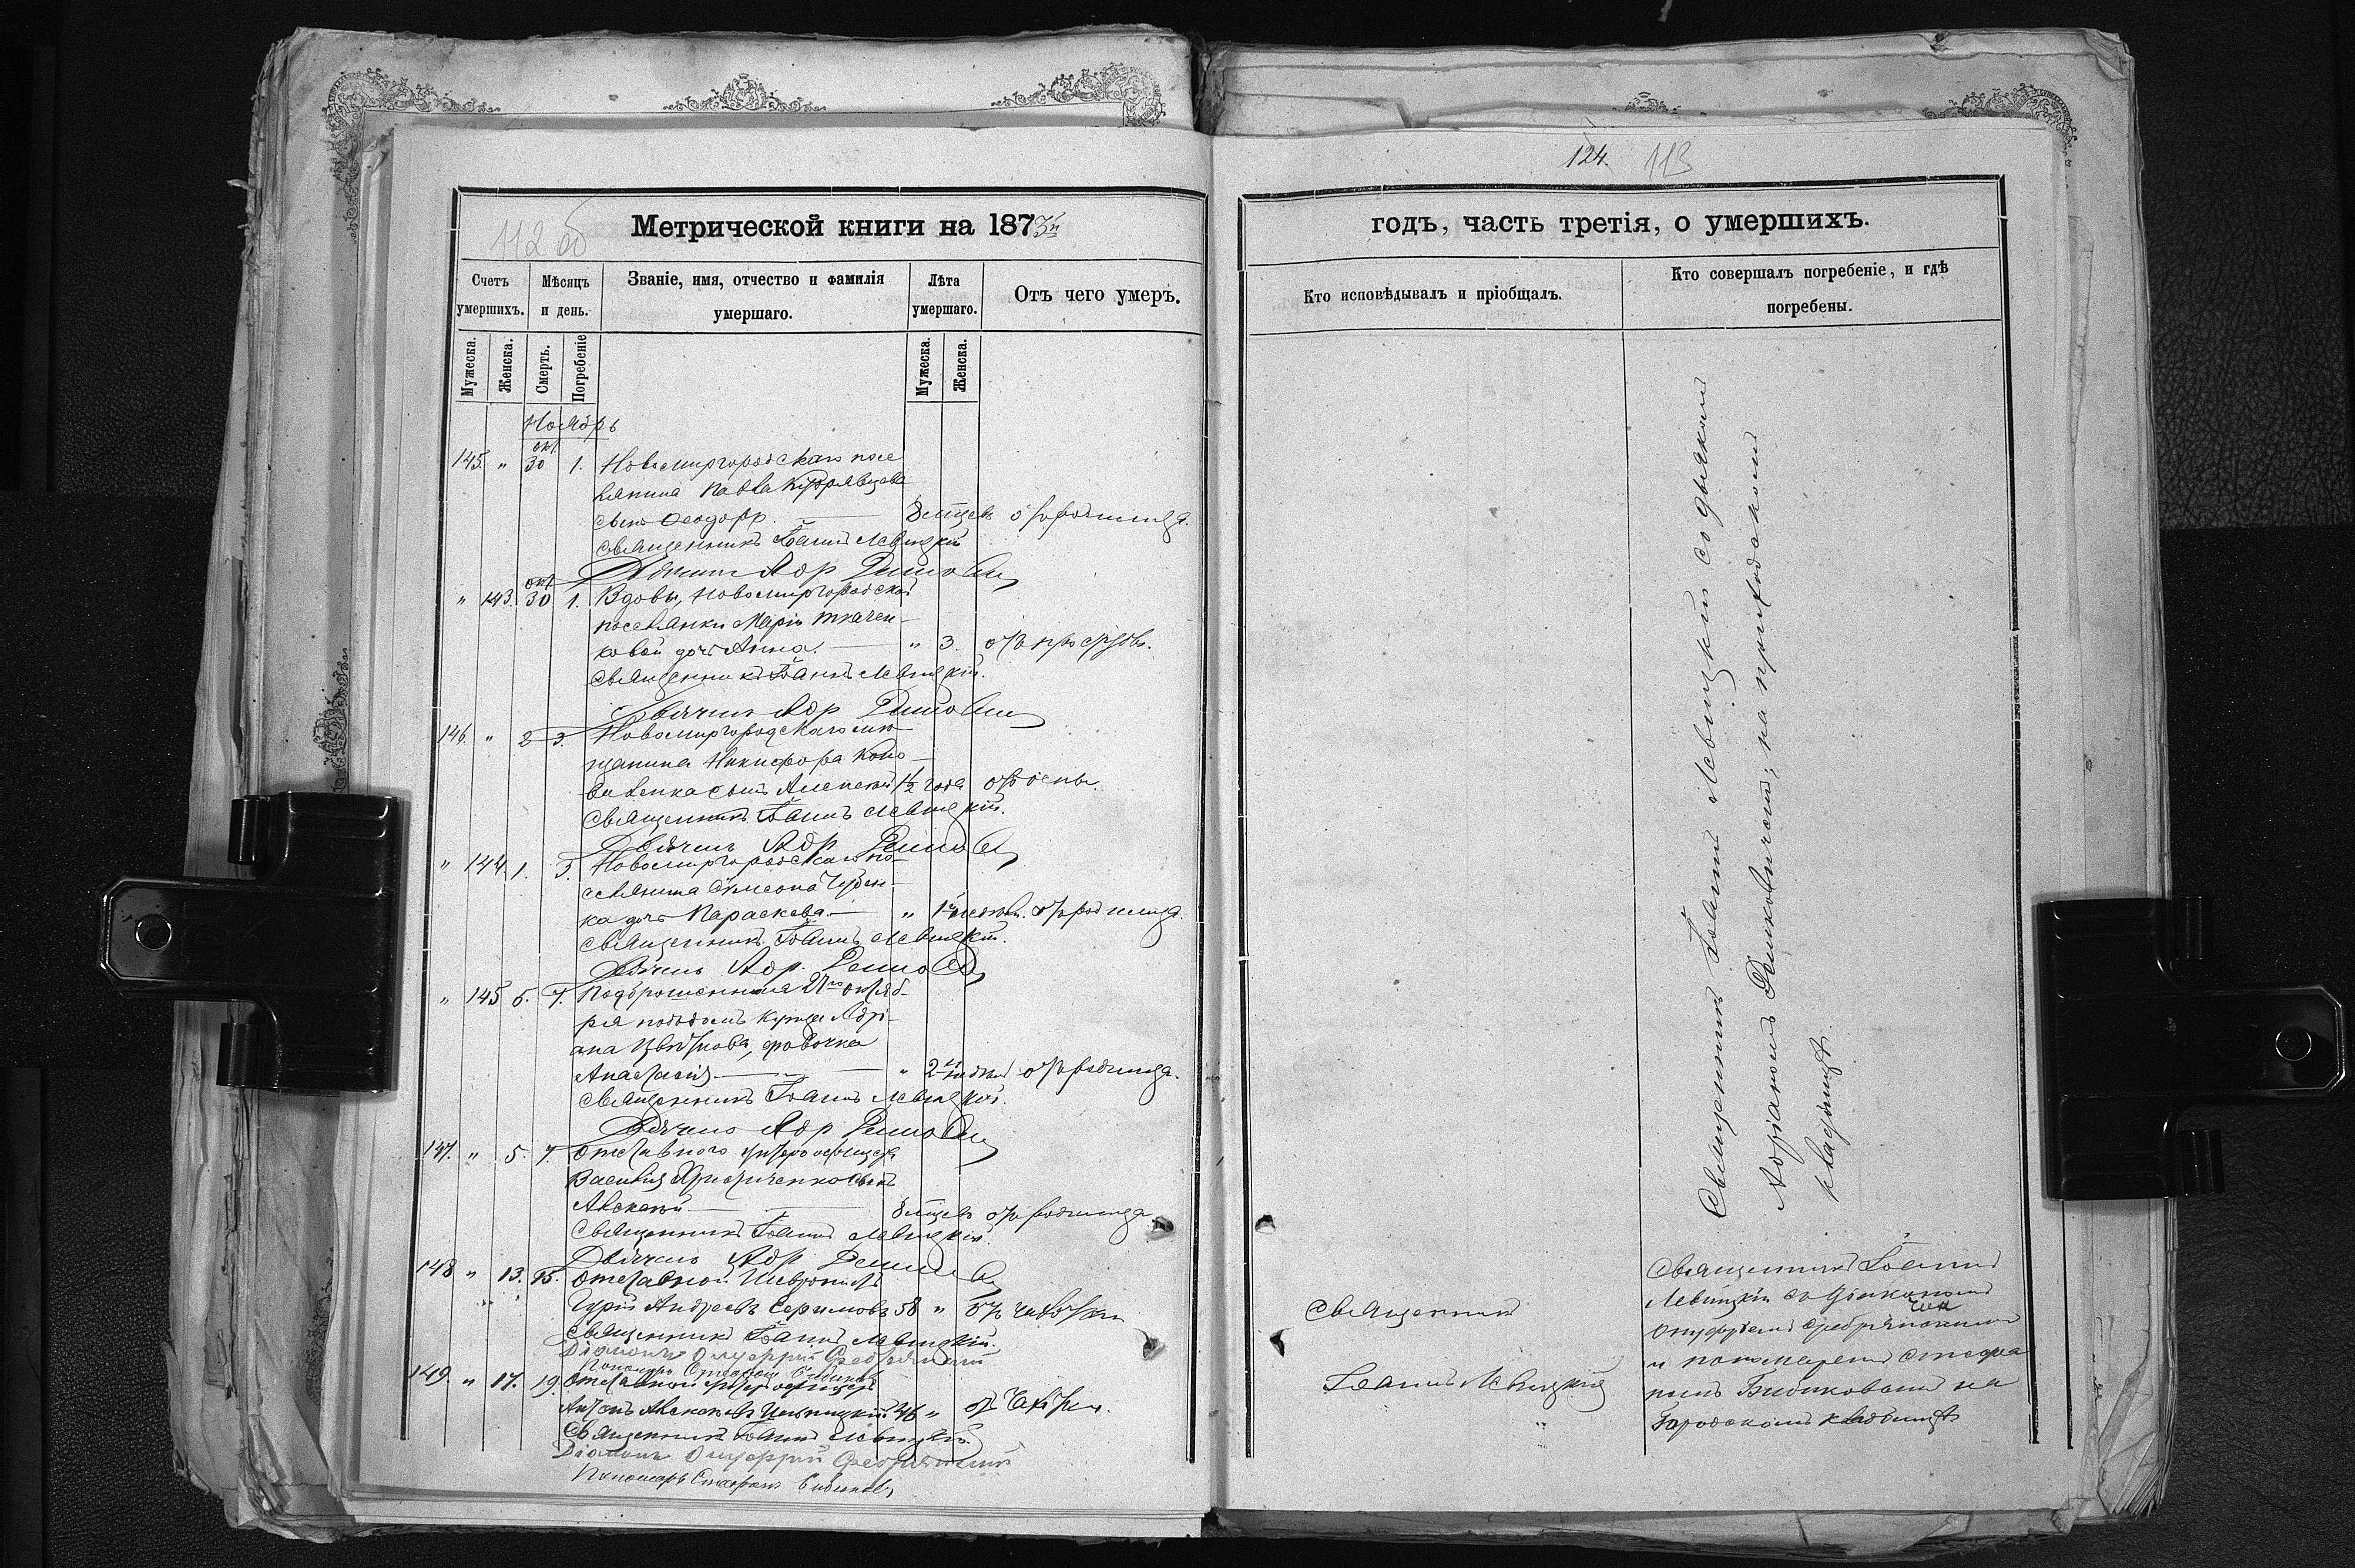 124. 113
112 об
Метрической книги на 1873й
годъ, часть третія, о умершихъ.
Счетъ умершихъ.
Мѣсяцъ и день.
Званіе, имя, отчество и фамилія умершаго.
Лѣта умершаго.
Отъ чего умеръ.
Кто исповѣдывалъ и пріобщалъ.
Кто совершалъ погребеніе, и гдѣ погребены.
Мужеска.
Женска.
Смерть.
Погребеніе
Мужеска.
Женска.
Ноябрь
окт
145. " 30 1. Новомиргородскаго посе
лянина Павла Кудрявцева
сынъ Ѳеодоръ. 8 мѣсяц. отъ родимца.
Священникъ Іоаннъ Левицкій
Дьячекъ Адр
окт
" 143. 30 1. Вдовы, Новомиргородской
поселянки Маріи Ткачен-
ковой дочь Анна. " 3. отъ простуды.
Священникъ Іоаннъ Левицкій.
Дьячекъ Адр
146. " 2 3. Новомиргородскаго мѣ
щанина Никифора Коно
валенка сынъ Алексѣй 1½ года отъ оспы.
Священникъ Іоаннъ Левицкій.
Дьячекъ Адр
" 144. 1. 3. Новомиргородскаго по-
селянина Симеона
ка дочь Параскева " отъ родимца.
Священникъ Іоаннъ Левицкій.
Дьячекъ Адр.
" 145 6. 7. Подброшенная 27го октяб-
ря подъ домъ купца Адрі-
ана Цвѣткова, дѣвочка
Анастасія " 2 отъ родимца.
Священникъ Іоаннъ Левицкій.
Дьячекъ Адр
147. " 5. 7. Отставного унтеръ офицера
Василія Христиченко сынъ
Алексѣй 8 мѣсяц. отъ родимца
Священникъ Іоаннъ Левицкій.
Дьячекъ Адр
148 " 13. 15. Отставной
Гурій Андреевъ 58 " отъ чахотки
Священникъ Іоаннъ Левицкій.
Діаконъ Онуфрій
Пономарь Стефанъ Бибиковъ
149. " 17. 19. Отставной унтеръ офицеръ
Антонъ Алексѣевъ 46 " отъ чахотки.
Священникъ Іоаннъ Левицкій.
Діаконъ Онуфрій
Пономарь Стефанъ Бибиковъ
Священникъ
Іоаннъ Левицкій
Священникъ Іоаннъ Левицкій со дьячкомъ
Адріаномъ на приходскомъ
кладбищѣ.
Священникъ Іоаннъ
Левицкій съ діакономъ
Онуфріемъ
и пономаремъ Стефа
номъ Бибиковымъ на
Городскомъ кладбищѣ